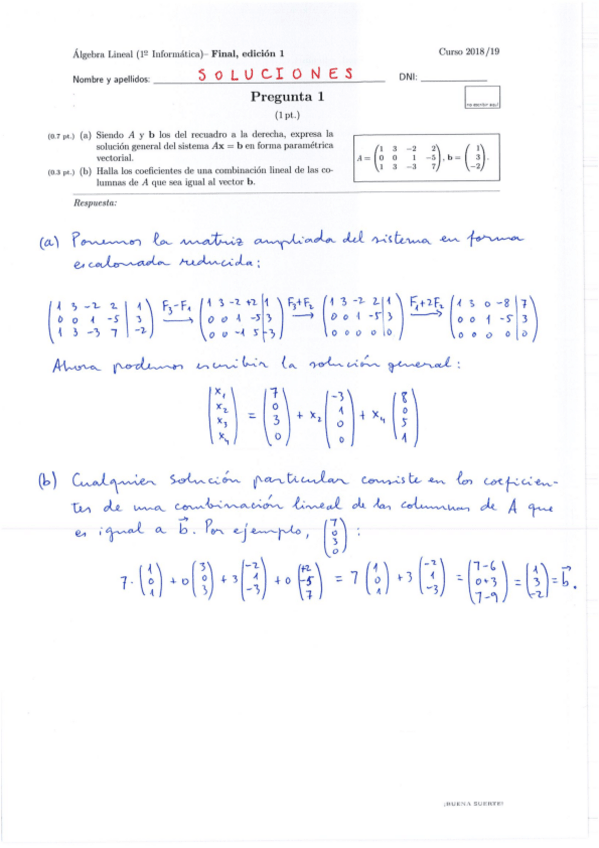 Álgebra Lineal (1º Informática)– Final, edición 1 Curso 2018/19
Nombre y apellidos: SOLUCIONES DNI:
Pregunta 1
(1 pt.)
(0.7 pt.) (a) Siendo A y b los del recuadro a la derecha, expresa la
solución general del sistema Ax = b en forma paramétrica
vectorial.
(0.3 pt.) (b) Halla los coeficientes de una combinación lineal de las co-
lumnas de A que sea igual al vector b.
A = (1 3 −2 2
0 0 1 −5
1 3 −3 7), b = (1
3
−2).
Respuesta:
(a) Ponemos la matriz ampliada del sistema en forma
escalonada reducida:
(1 3 -2 2 | 1) F3-F1 (1 3 -2 +2 | 1) F3+F2 (1 3 -2 2 | 1) F1+2F2 (1 3 0 -8 | 7)
(0 0 1 -5 | 3) → (0 0 1 -5 | 3) → (0 0 1 -5 | 3) → (0 0 1 -5 | 3)
(1 3 -3 7 | -2) (0 0 -1 5 | -3) (0 0 0 0 | 0) (0 0 0 0 | 0)
Ahora podemos escribir la solución general:
(x1) (7) (-3) (8)
(x2) = (0) + x2 (1) + x4 (0)
(x3) (3) (0) (5)
(x4) (0) (0) (1)
(b) Cualquier solución particular consiste en los coeficien-
tes de una combinación lineal de las columnas de A que
es igual a b⃗. Por ejemplo, (7 0 3 0) :
7·(1) + 0(3) + 3(-2) + 0(+2) = 7(1) + 3(-2) = (7-6) = (1)
(0) (0) (1) (-5) (0) (1) (0+3) (3) = b⃗.
(1) (3) (-3) (7) (1) (-3) (7-9) (-2)
¡BUENA SUERTE!